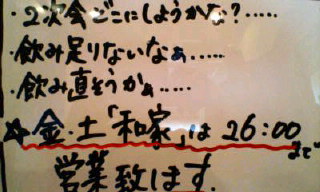 ・2次会どこにしようかな?‥‥‥
・飲み足りないなぁ‥‥‥
・飲み直そうかぁ‥‥‥
☆金・土「和家」は 26:00まで
営業致します.